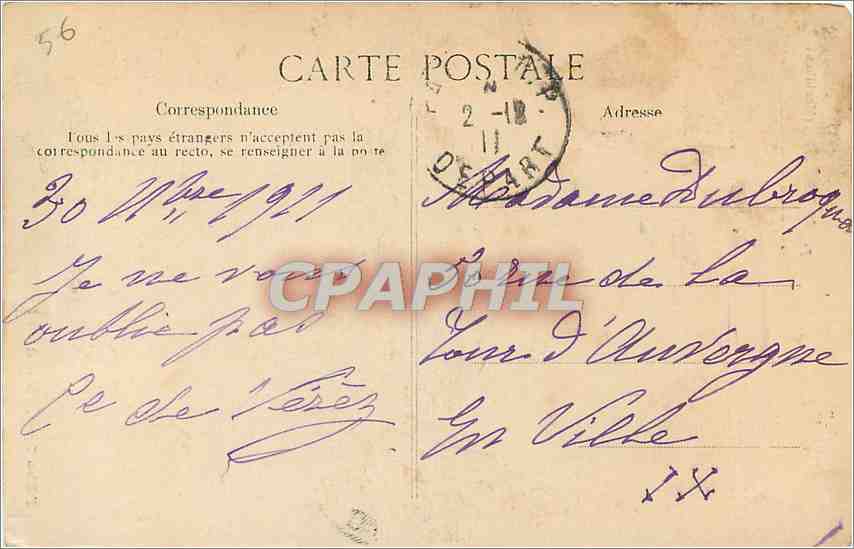 56
CARTE POSTALE
Correspondance
Tous les pays étrangers n'acceptent pas la
correspondance au recto, se renseigner à la poste
30 9bre 1911
Je ne vous
oublie pas
Ce de
Adresse
2 -12
11
DEPART
Madame
rue de la
Tour d'Auvergne
En Ville
IX
CPAPHIL